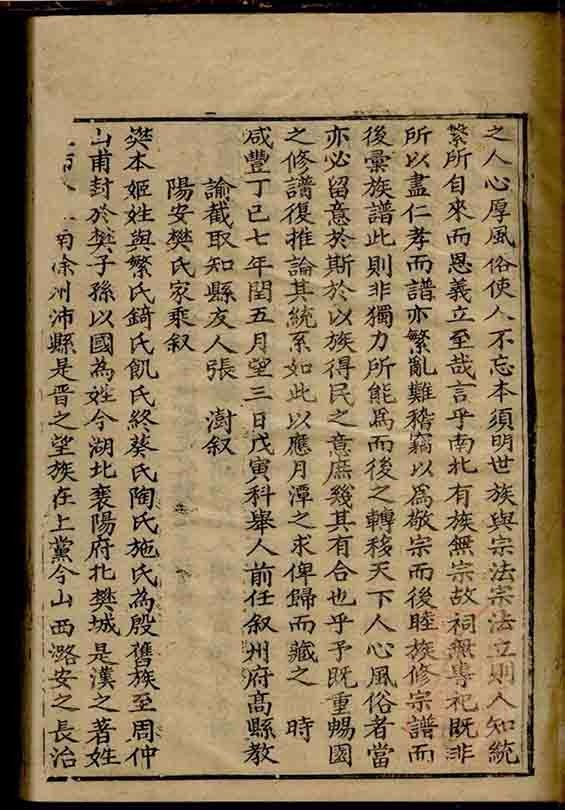 之人心厚風俗使人不忘本須明世族與宗法宗法立則人知統
繫所自來而恩義立至哉言乎南北有族無宗故祠無專祀既非
所以盡仁孝而譜亦繁亂難稽竊以爲敬宗而後睦族修宗譜而
後彙族譜此則非獨力所能爲而後之轉移天下人心風俗者當
亦必留意於斯於以族得民之意庶幾其有合也乎予既重暢園
之修譜復推論其統系如此以應月潭之求俾歸而藏之 時
咸豐丁巳七年閏五月望三日戊寅科舉人前任叙州府高縣教
諭截取知縣友人張 澍叙
陽安樊氏家乘叙
樊本姬姓與繁氏錡氏飢氏終葵氏陶氏施氏為殷舊族至周仲
山甫封於樊子孫以國為姓今湖北襄陽府北樊城是漢之著姓
南徐州沛縣是晋之望族在上黨今山西潞安之長治